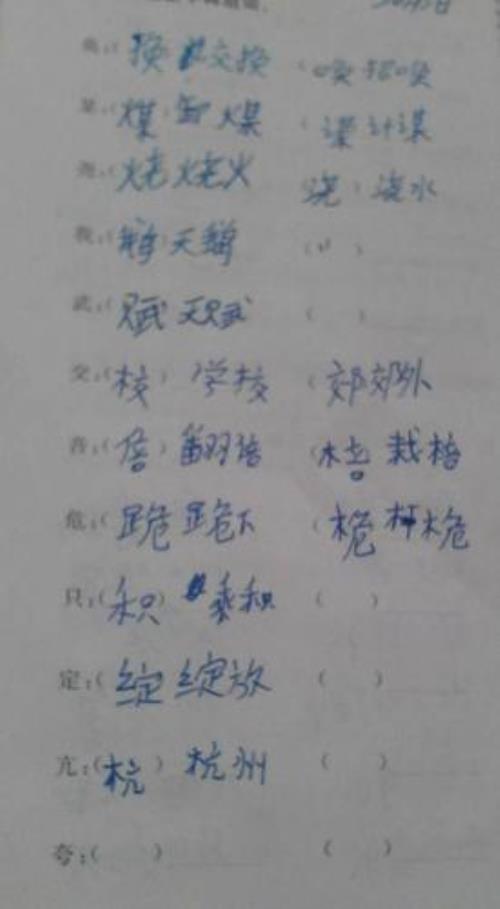 奂:(换) 交换 (唤 招唤
某:(煤) 卸煤 (谋 计谋
尧:(烧 烧火 浇) 浇水
我:(鹅) 天鹅 ( )
武:(赋 天赋 ( )
交:(校) 学校 (郊 郊外
咅:(倍) 翻倍 (棓 栽棓
危:(跪 跪下 (桅 桅杆
只:(积) 乘积 ( )
定:(绽 绽放 ( )
亢:(杭) 杭州 ( )
夸:( ) ( )